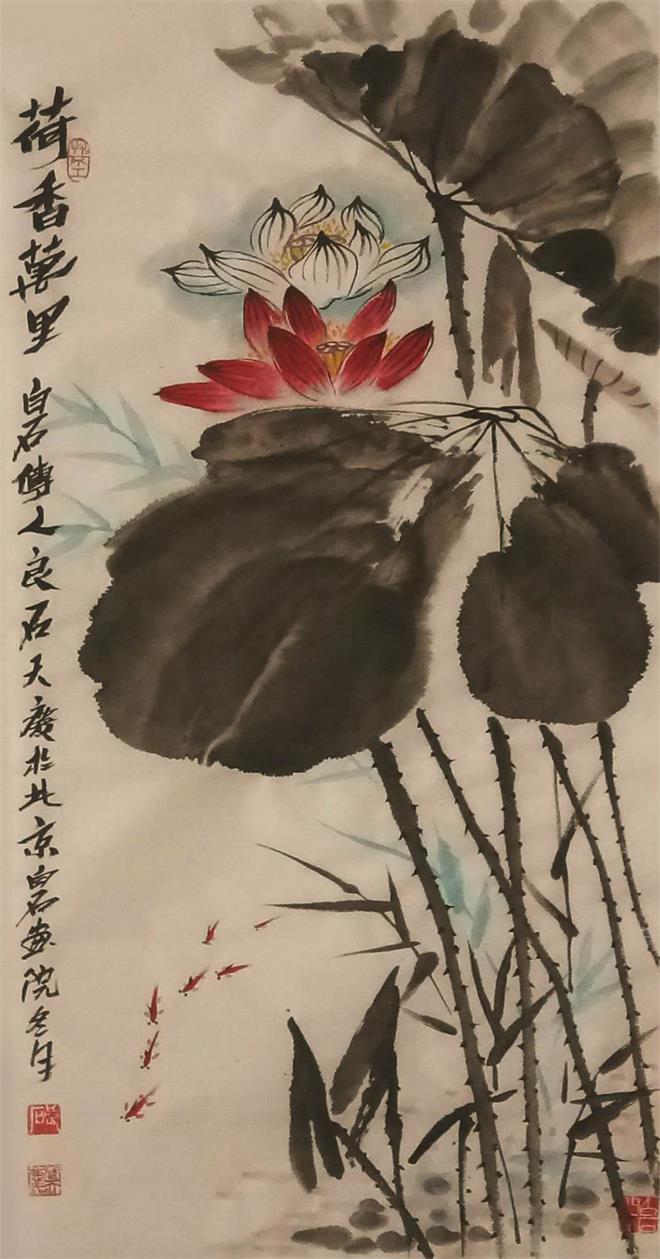 荷香萬里
白石傳人良石天慶於北京白石画院冬月